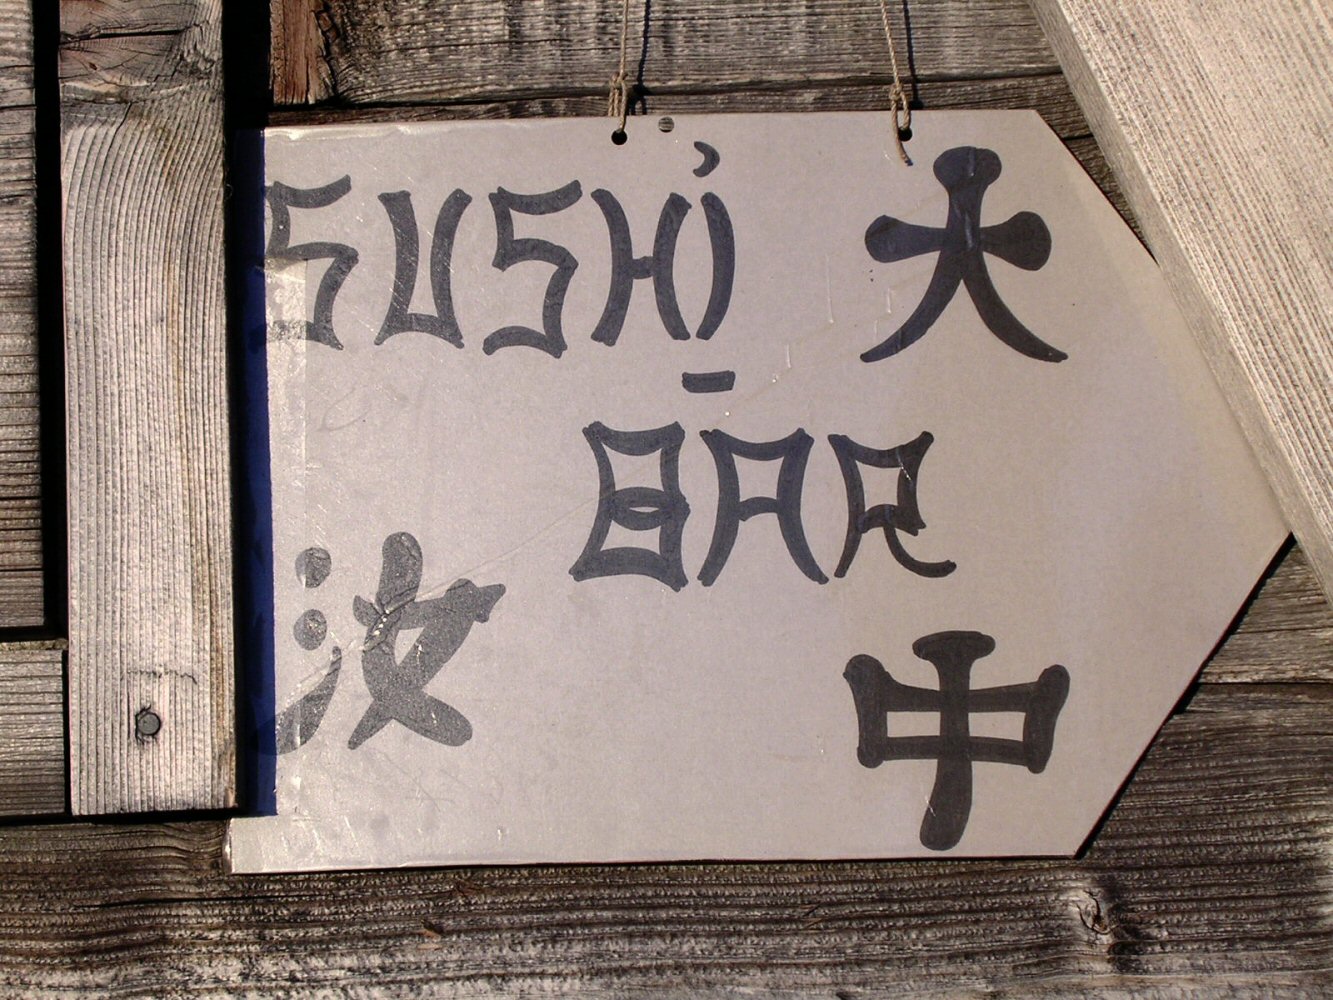 SUSHI 大
-
BAR
汝 中